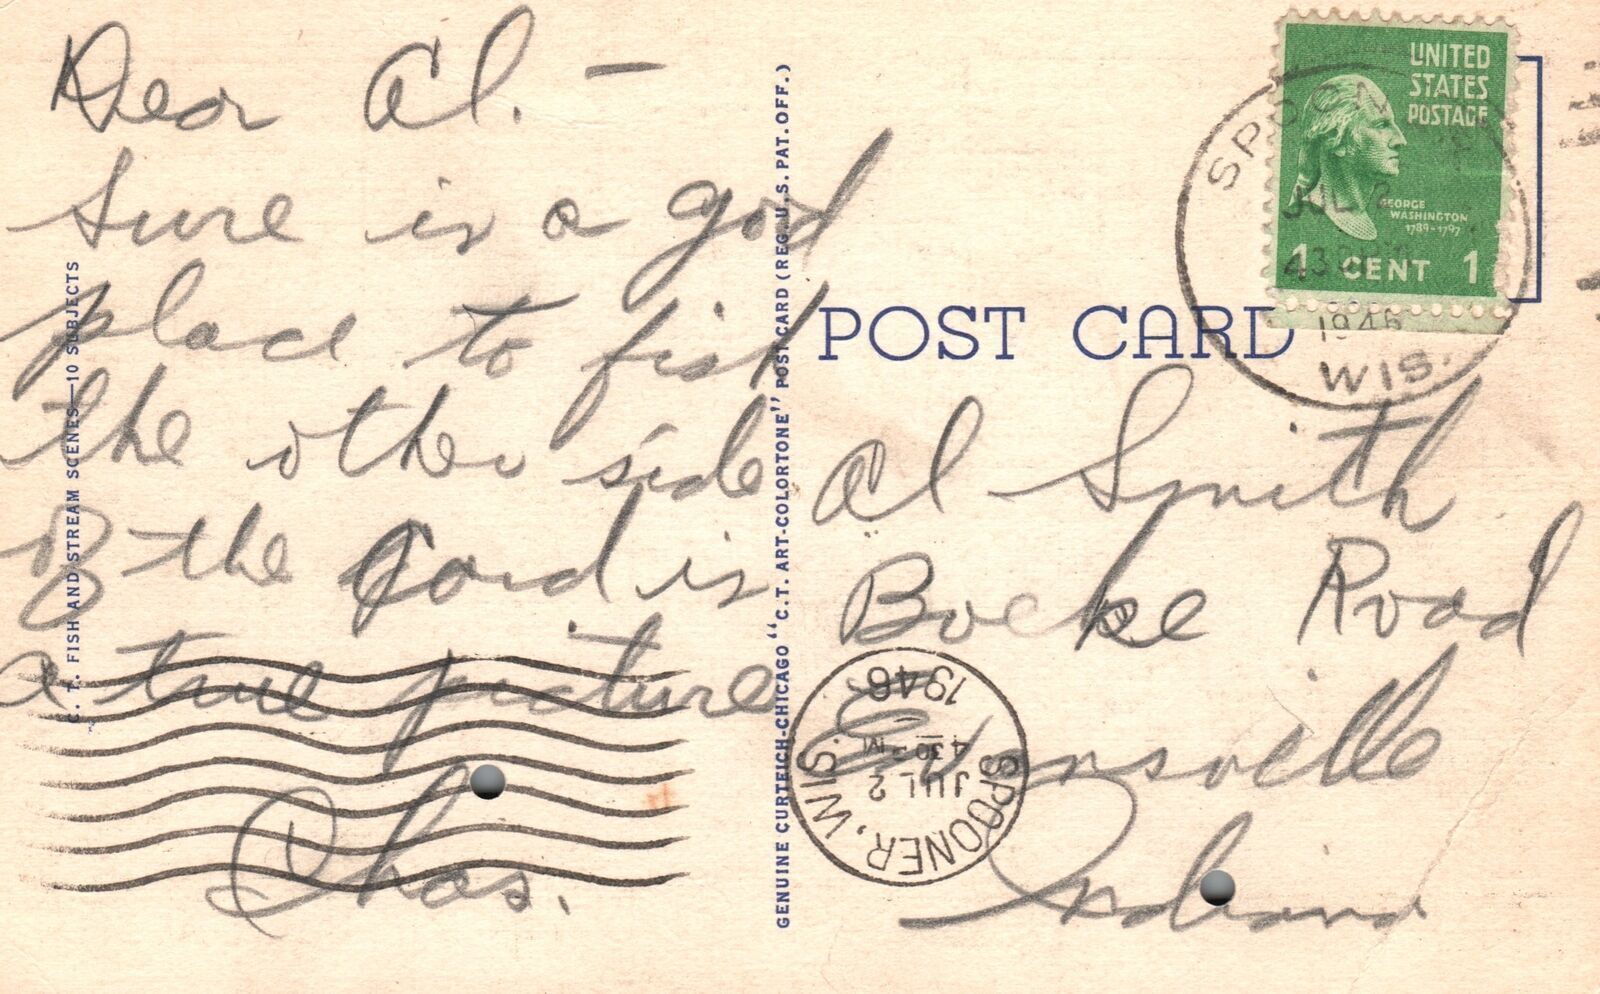 Dear Al. —
Sure is a good
place to fish
the other side
of the Card is
a true picture
Chas.
C. T. FISH AND STREAM SCENES—10 SUBJECTS
GENUINE CURTEICH-CHICAGO "C.T. ART-COLORTONE" POST CARD (REG. U.S. PAT. OFF.)
UNITED
STATES
POSTAGE
GEORGE
WASHINGTON
1789-1797
1 CENT 1
JUL 2
430
1946
WIS.
POST CARD
Al Smith
Boeke Road
Evansville
Indiana
SPOONER, WIS.
JUL 2
430 PM
1946